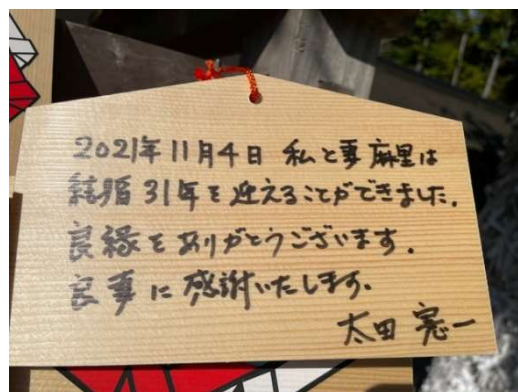 2021年11月4日 私と妻麻里は
結婚31年を迎えることができました.
良縁をありがとうございます.
良事に感謝いたします.
太田 憲一